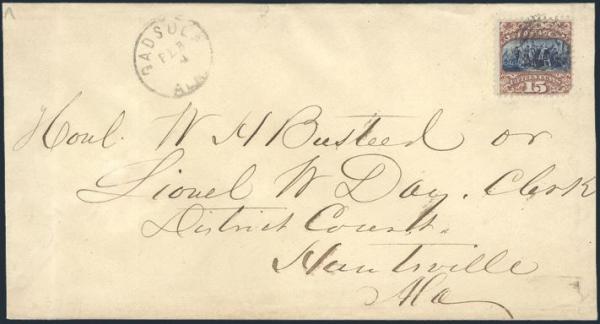 GADSDEN
FEB
4
ALA
15
Honl. W H Busteed or
Lionel W Day, Clerk
District Court,
Huntsville
Ala